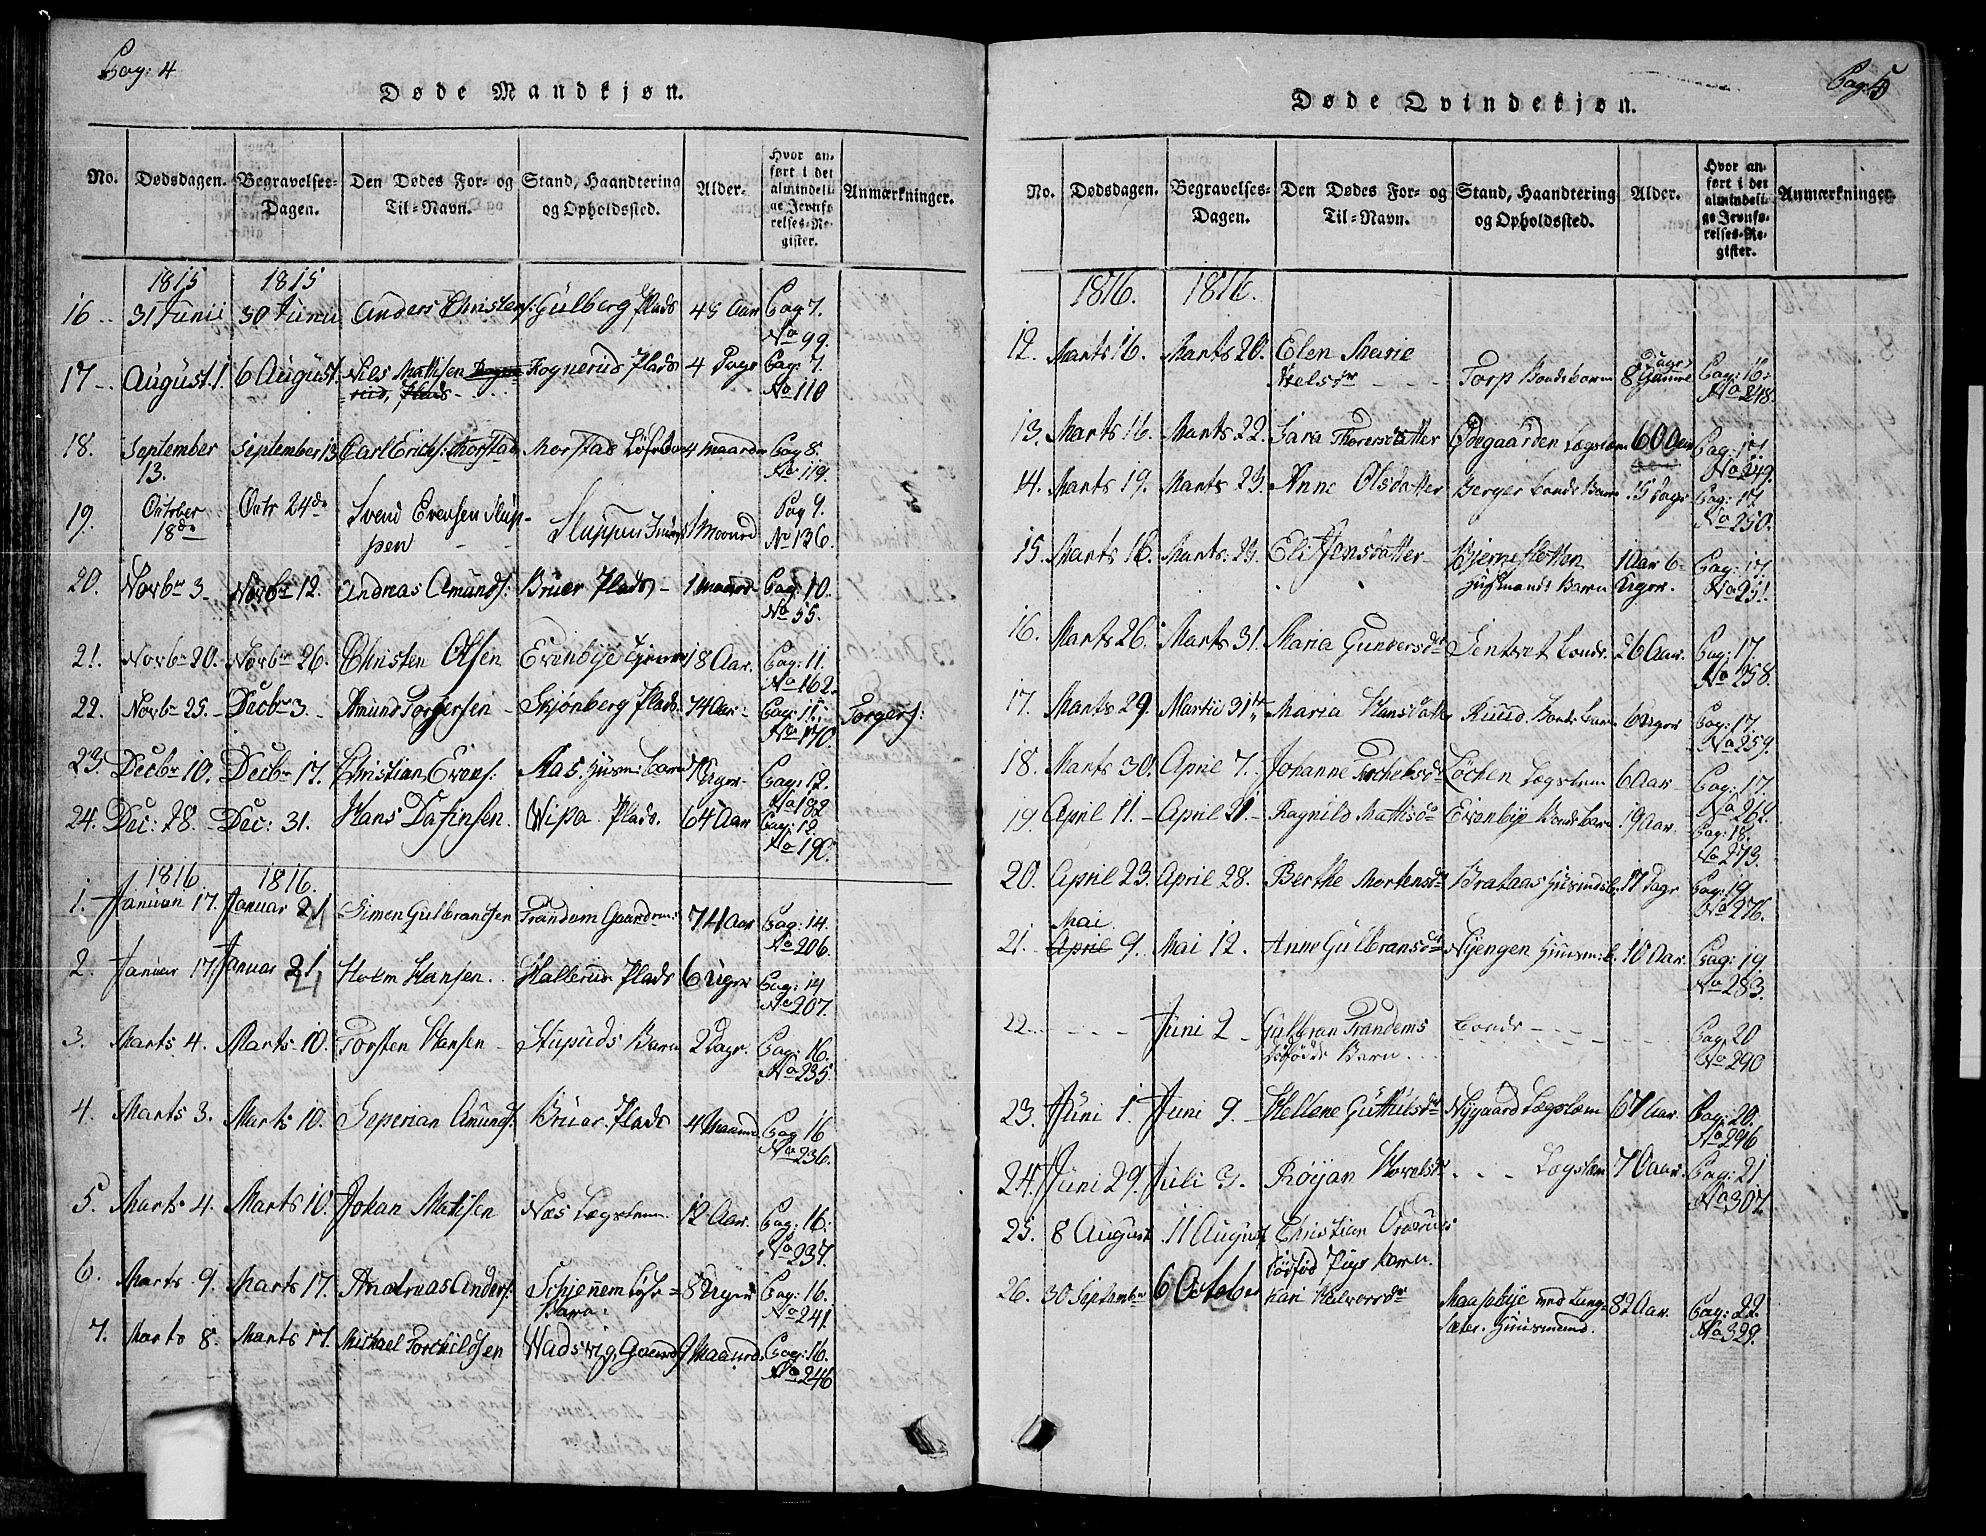 Pag: 4
Døde Mandkjøn.
No. Dødsdagen. Begravelses-Dagen. Den Dødes For- og Til-Navn. Stand, Haandtering og Opholdssted. Alder. Hvor anført i det almindelige Jevnførelses-Register. Anmærkninger.
1815 1815
16 31 Junii 30 Junii Anders Christens: Gulberg Plads 45 Aar Pag 7. No 99.
17 August 1. 6 August. Niels Mathisen Kognerud Plads 4 Dage Pag: 7. No 110
18. September 13. September 13 Carl Erichs: Morstad Morstad 4 Maaneder Pag 8. No 119.
19. October 18de Octr 24de Svend Evensen Stuppen Stuppen 1 Maaned Pag 9. No 136.
20. Novbr 3 Novbr 12. Andreas Amunds: Bruer Plads 1 Maaned Pag: 10. No 55.
21. Novbr 20. Novbr 26. Christen Olsen Evenbye 18 Aar. Pag: 11. No 162.
22. Novbr 25. Decbr 3. Amund Torgersen Skjønberg Plads. 74 Aar Pag: 11. No 170. Torgers:
23. Decbr 10. Decbr 17. Christian Evens: Aas Huusm: Barn 7 Uger Pag: 12. No 182
24. Dec: 28. Dec: 31. Hans Dafinsen. Plads. 64 Aar Pag: 12. No 190.
1816 1816.
1. Januar 17. Januar 21 Simen Gulbrandsen Trandum Gaardm: 74 Aar Pag: 14. No 206.
2. Januar 17. Januar 21 Holm Hansen. Hallerud Plads 6 Uger Pag: 14 No 207.
3. Marts 4. Marts 10. Torsten Hansen Barn 2 Dage. Pag: 16. No 235.
4. Marts 3. Marts 10. Seperian Amunds: Bruer Plads 4 Maaned Pag 16 No 236.
5. Marts 4. Marts 10. Johan Matisen Næs Lægslem 12 Aar. Pag: 16. No 237.
6. Marts 9. Marts 17. Andreas Anders: Schjennem Barn: 8 Uger Pag: 16. No 241.
7. Marts 8. Marts 17. Michael Torchildsen Wadsvig, Gaard 9 Maaned. Pag: 16. No 246
Pag: 5
Døde Qvindekjøn.
No. Dødsdagen. Begravelses-Dagen. Den Dødes For- og Til-Navn. Stand, Haandtering og Opholdssted. Alder. Hvor anført i det almindelige Jevnførelses-Register. Anmærkninger.
1816. 1816.
12. Marts 16. Marts 20. Elen Marie Nielsdr Torp Bonde barn 8 Dage Gammel Pag: 16: No 248.
13. Marts 16. Marts 22. Sara Thorersdatter Ødegaarden Lægslem 60 Aar Pag: 17. No 249.
14. Marts 19. Marts 23. Anne Olsdatter Berger bonde Barn 15 Dage Pag: 17. No 250.
15. Marts 16. Marts 23. Eli Jensdatter Huusmands Barn 1 Aar 6 Uger. Pag: 17. No 251.
16. Marts 26. Marts 31. Maria Gundersdr bonde. 26 Aar. Pag: 17. No 258.
17. Marts 29. Martii 31te Maria Hansdatter Ruud bonde barn 6 Uger Pag: 17. No 259.
18. Marts 30. April 7. Johanne Løchen Lægslem 6 Aar Pag: 17. No 262.
19. April 11. April 21. Ragnild Mathisdr Evenbye bonde barn 19 Aar. Pag: 18. No 273.
20. April 23. April 28. Berthe Mortensdr Brataas Huusmds b. 17 Dage Pag: 19 No 276.
21. Mai April 9. Mai 12. Anne Gulbransdr Nyengen Huusm: b. 10 Aar. Pag: 19 No 283.
22. Juni 2 Gulbran Trandems Døfødde Barn bonde Pag 20 No 290
23. Juni 1. Juni 9. Hellene Guttulsdr Nygaard Lægslem 67 Aar. Pag: 20. No 296
24. Juni 29. Juli 3. Røyan Lægslem 70 Aar. Pag: 21 No 302
25. 8 August 11 August Christian Dødfød Pige barn.
26. 30 September 6 October Kari Halvorsdr Maasebye ved Huusmand. 82 Aar. Pag: 22. No 329.